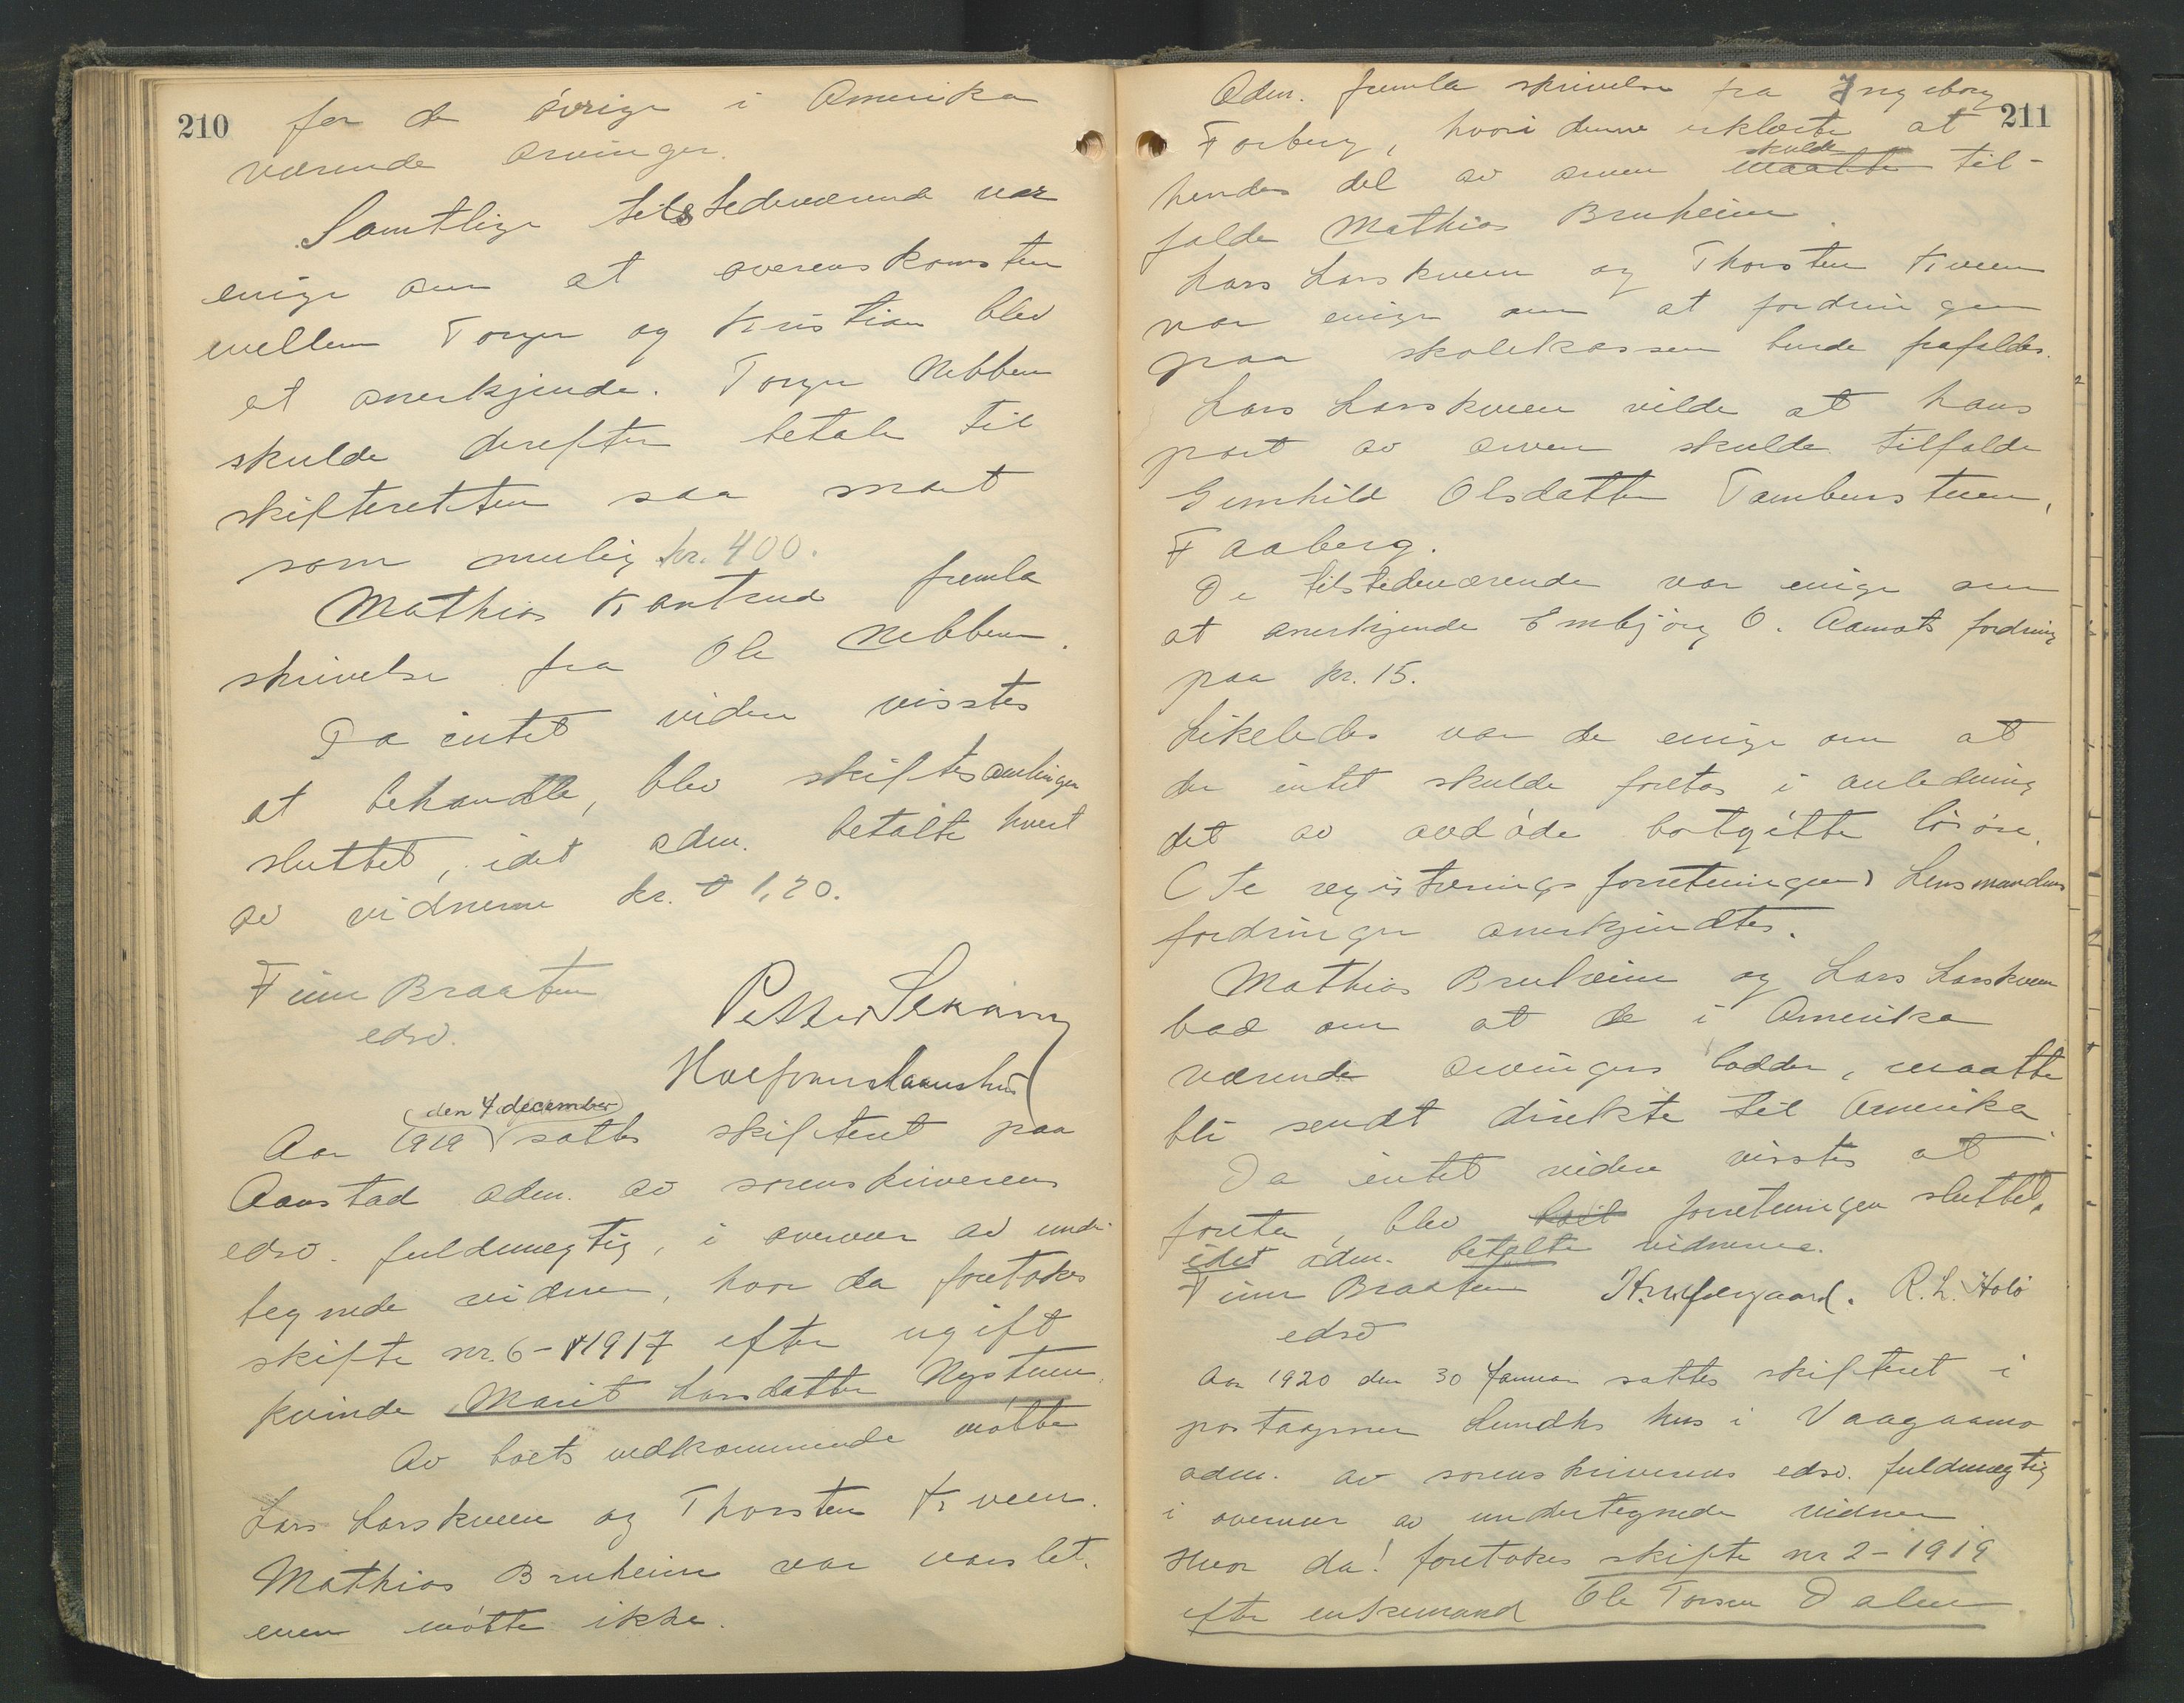 210
for de øvrige i Amerika
værende arvinger.
Samtlige tilstedeværende var
enige om at overenskomsten
mellem Torger og Kristian blev
at anerkjende. Torger Nebben
skulde derefter betale til
skifteretten saa snart
som mulig kr. 400.
Mathias Kantrud fremla
skrivelse fra Ole Nebben.
Da intet videre visstes
at behandle, blev skiftesamlingen
sluttet, idet adm. betalte hvert
av vidnerne kr. 1,20.
Finn Braaten
edsv.
den 4 december
Aar 1919 sattes skifteret paa
Aanstad adm. av sorenskriverens
edsv. fuldmegtig, i overvær av under-
tegnede vidner, hvor da foretokes
skifte nr. 6 - 1917 efter ugift
kvinde Marit Larsdatter Nystuen.
Av boets vedkommende møtte
Lars Larskveen og Thorsten Kveen.
Mathias Bruheim var varslet.
men møtte ikke.
211
Adm. fremla skrivelse fra Ingeborg
Forberg, hvori denne erklærte at
skulde
hendes del av arven maatte til-
falde Mathias Bruheim.
Lars Larskveen og Thorsten Kveen
var enige om at fordringen
paa skolekassen burde frafaldes.
Lars Larskveen vilde at hans
part av arven skulde tilfalde
Gunhild Olsdatter Tamburstuen,
Faaberg.
De tilstedeværende var enige om
at anerkjende Embjørg O. Aamots fordring
paa kr. 15.
Likeledes var de enige om at
der intet skulde foretas i anledning
det av avdøde bortgitte løsøre.
(Se registreringsforretningen) Lensmandens
fordringer anerkjendtes.
Mathias Bruheim og Lars Larskveen
bad om at de i Amerika
værende arvingers lodder, maatte
bli sendt direkte til Amerika.
Da intet videre visstes at
foreta, blev boet forretningen sluttet,
idet adm. betalte vidnerne.
Finn Braaten R. L. Holø
edsv
Aar 1920 den 30 Januar sattes skifteret i
postaapner Lundhs hus i Vaagaamo
adm. av sorenskriverens edsv. fuldmegtig
i overvær av undertegnede vidner
Hvor da! foretokes skifte nr 2 - 1919
efter enkemand Ole Torsen Dalen